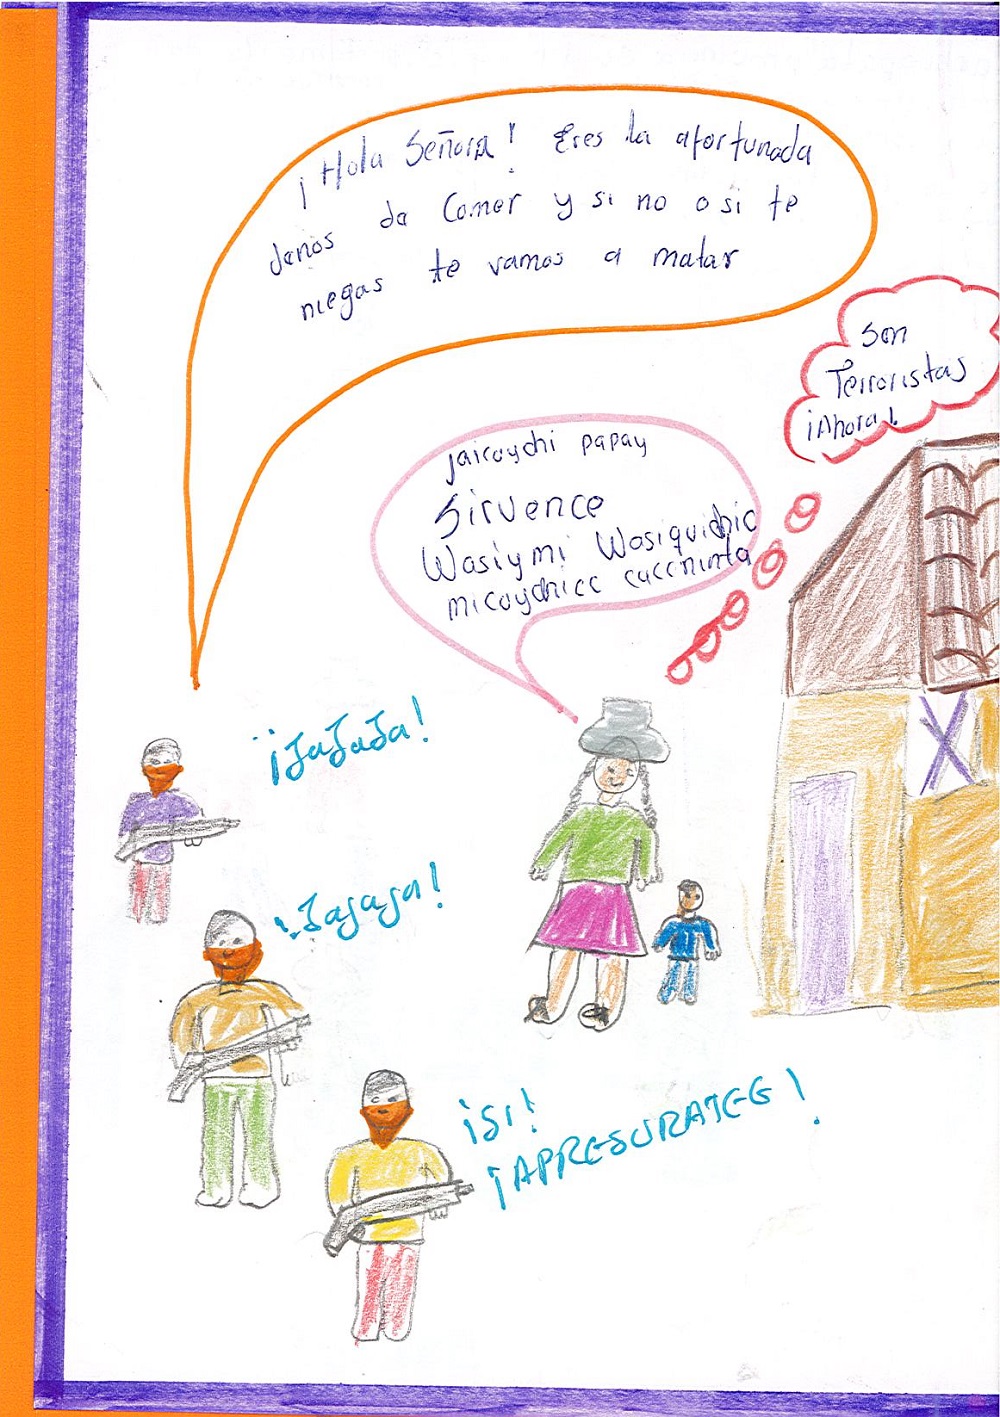 ¡Hola Señora! Eres la afortunada
denos da Comer y si no o si te
niegas te vamos a matar
Son
Terroristas
¡Ahora!
jaicuychi papay
Sirvence
Wasiymi Wasiquichic
micuychicc cuccninta
¡JaJaJa!
¡Jajaja!
¡SI!
¡APRESURATEG!